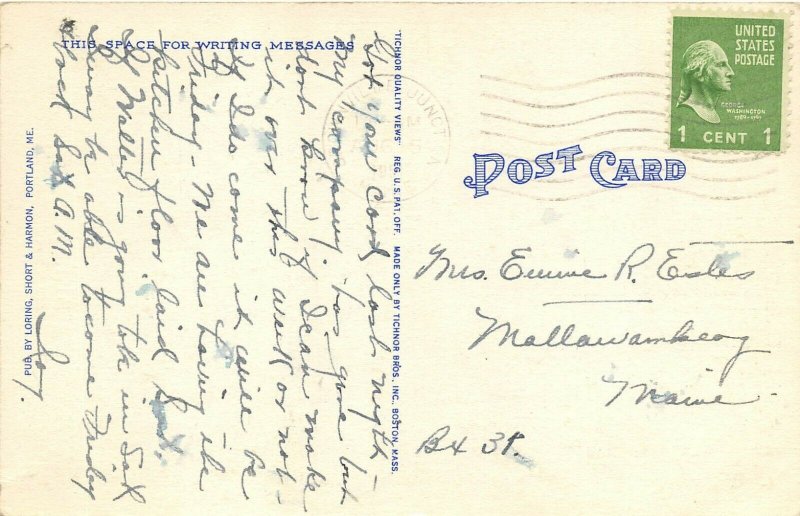 THIS SPACE FOR WRITING MESSAGES
Got your card last night -
My company has gone but
dont know if I can make
it over this week or not -
If I do come it will be
Friday - We are having the
kitchen floor laid Sat.
If Walter is going to be in Sat
I may be able to come Friday
back Sat A.M.
Joy.
PUB. BY LORING, SHORT & HARMON, PORTLAND, ME.
"TICHNOR QUALITY VIEWS" REG. U.S. PAT. OFF. MADE ONLY BY TICHNOR BROS., INC., BOSTON, MASS.
JUNCT
UNITED
STATES
POSTAGE
GEORGE
WASHINGTON
1789-1797
1 CENT 1
POST CARD
Mrs. Emme R. Estes
Mattawamkeag
Maine
Bx 38.